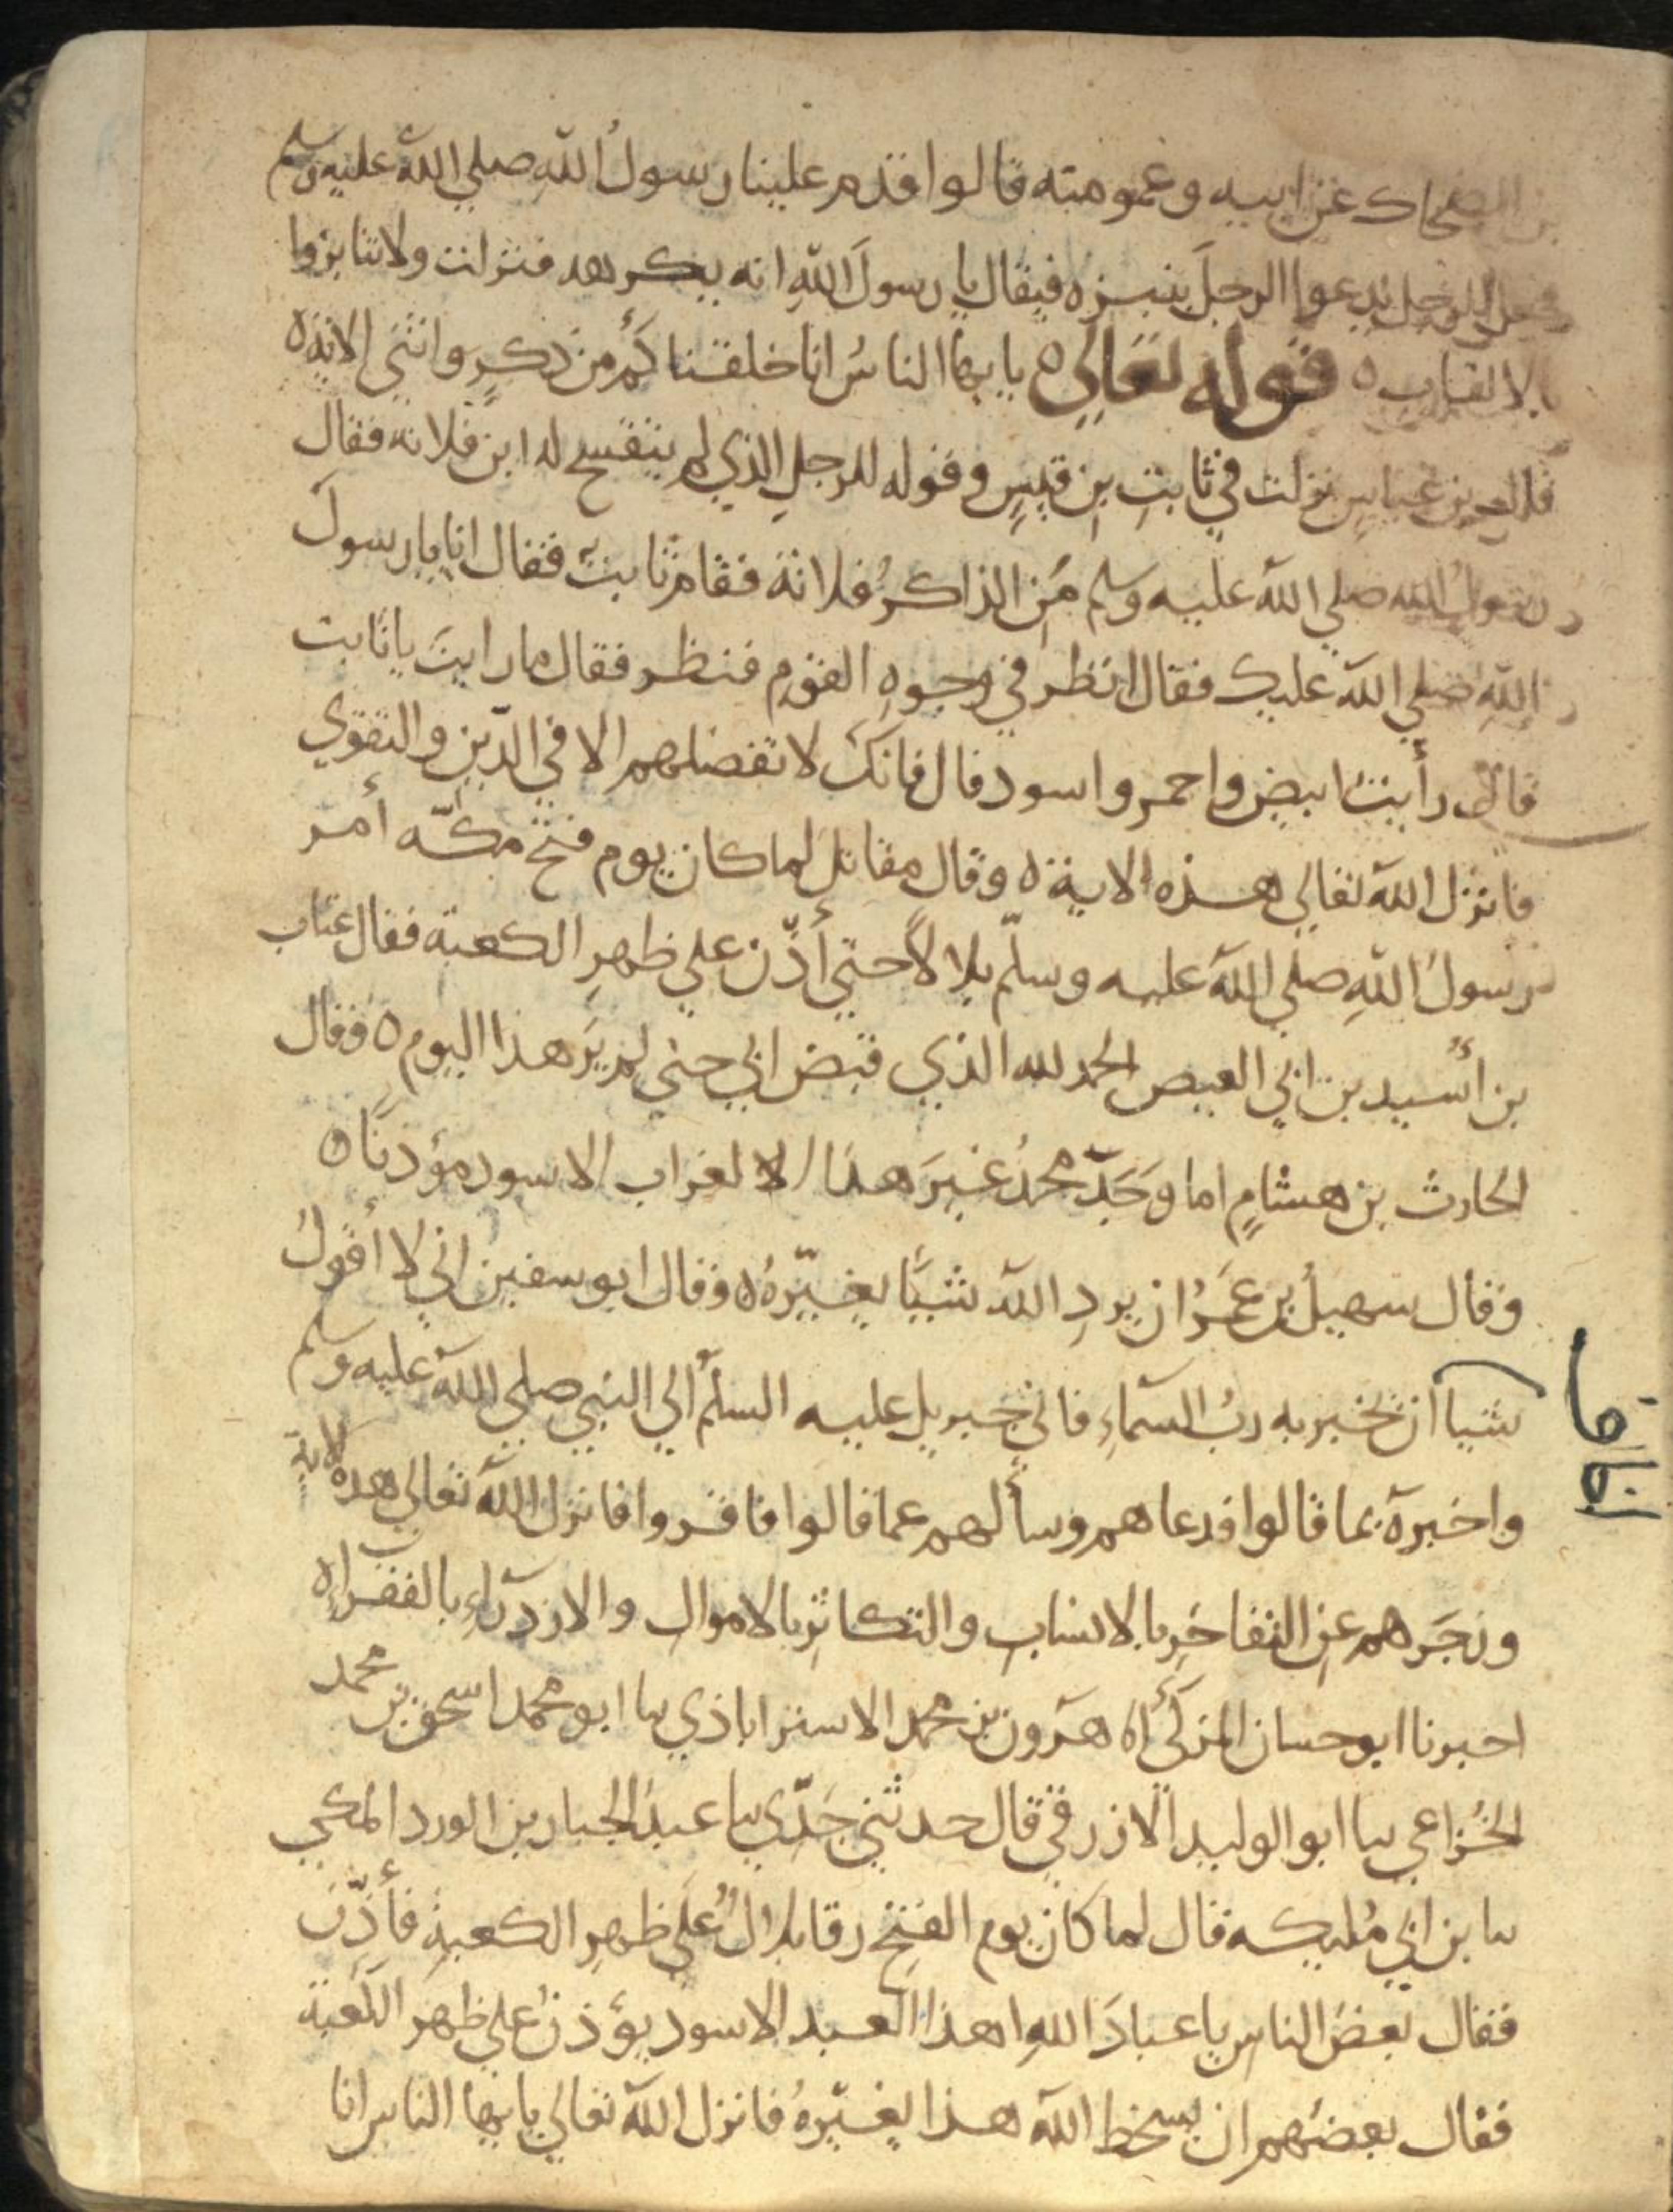 بن الضحاك عن ابيه وعمومته قالوا قدم علينا رسولُ اللهِ صلي الله عليه وسلم
فجعل الرجل يدعوا الرجلَ ينبزه فيقال يا رسولَ اللهِ انه يكرهه فنزلت ولا تنابزوا
بالالقاب ه قوله تعالي ه يا يها الناسُ انا خلقناكُم من ذكرٍ وانثي الاية ه
قال ابن عباسٍ نزلت في ثابتِ بنِ قيسٍ وقوله للرجلِ الذي لم يتفسح له ابن فلانه فقال
رسولُ الله صلي الله عليه وسلم مَنِ الذاكرُ فلانة فقام ثابتٌ فقال انا يا رسولَ
اللهِ صلي الله عليك فقال انظر في وجوهِ القومِ فنظر فقال ما رايتَ يا ثابت
قال رأيتُ ابيض واحمر واسود قال فانكَ لا تفضلهم الا في الدّينِ والتقوي
فانزل الله تعالي هذه الاية ه وقال مقاتل لما كان يوم فتح مكّه أمر
رسولُ اللهِ صلي الله عليه وسلّم بلالاً حتي أذّن علي ظهرِ الكعبة فقال عتاب
بن أُسيد بن ابي العيص الحمد لله الذي قبض ابي حتي لم يَرَ هذا اليوم ه وقال
الحارث بن هشامٍ اما وَجَدَ محمدُ غيرَ هذا الا لغراب الاسود مؤذنًا ه
وقال سهيلُ بن عَمرُ ان يردِ الله شيًا يغيّرهُ ه وقال ابو سفين اني لا أقولُ
شيا ان يخبر به ربُ السمآءِ فاتي جبريل عليه السلم الي النبي صلي الله عليه وسلم
واخبرة بما قالوا فدعاهم وسألهم عما قالوا فاقروا فانزل الله تعالي هذه الاية
وزجَرهم عنِ التفاخرِ بالانسابِ والتكاثرِ بالاموالِ والازدرآءِ بالفقراءِ ه
اخبرنا ابو حسان المزكي اه هرون بن محمد الاستراباذي ىا ابو محمد اسحق بن محمد
الخُزاعي ىا ابو الوليد الازرقي قال حدثني جَدّي ىا عبدُ الجبار بن الورد المكي
ىا بن ابي مُليكه قال لما كان يوم الفتحِ رقا بلالُ عَلَي ظهرِ الكعبةِ فأذّن
فقال بعضُ الناسِ يا عبادَ اللهِ اهذا العبد الاسود يؤذنُ علي ظهر الكعبة
فقال بعضهم ان يسخط الله هذا يغيّرهُ فانزل الله تعالي يا يها الناس انا